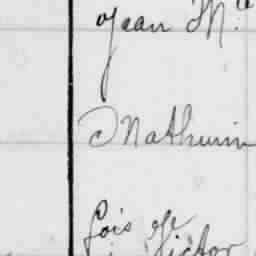 Jean M.ie
Mathurin
fois
Victor